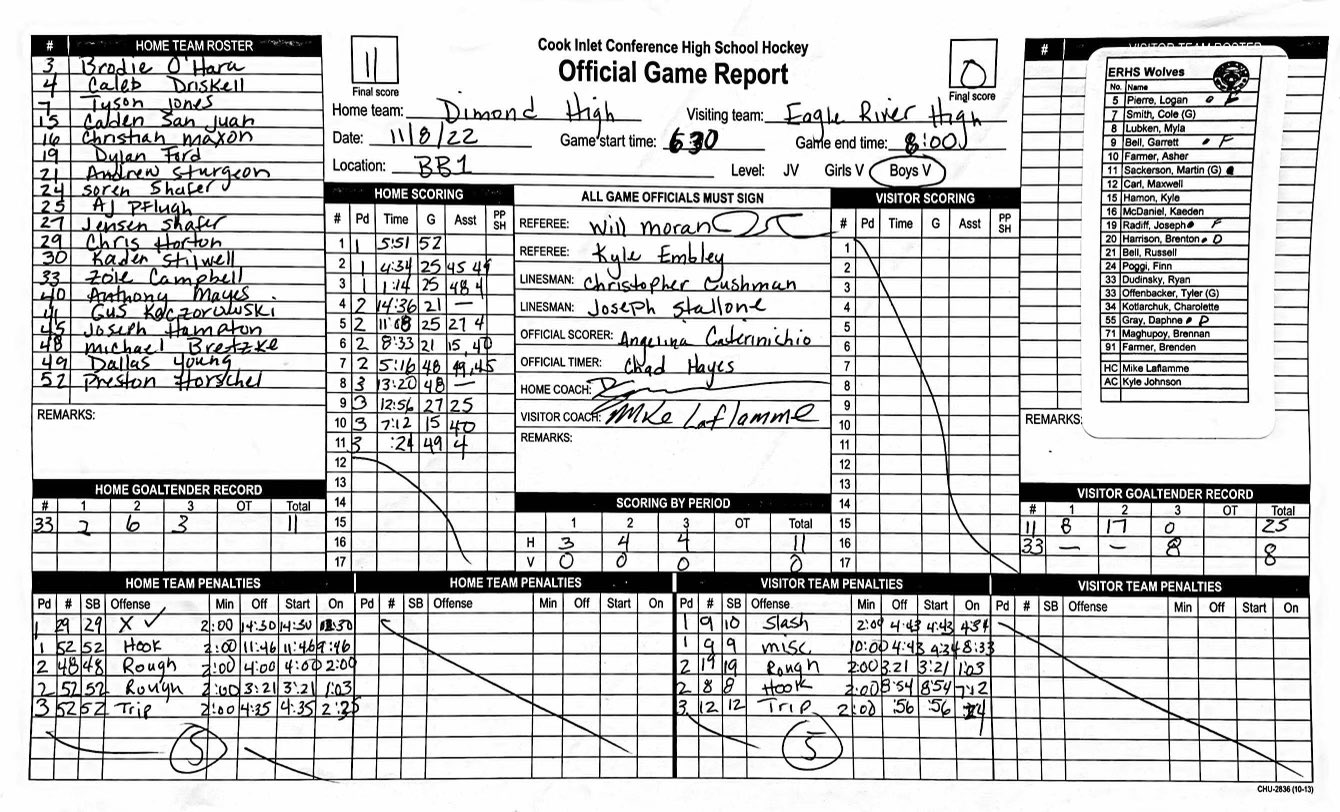 Cook Inlet Conference High School Hockey
Official Game Report
11
Final score
0
Final score
Home team: Dimond High
Visiting team: Eagle River High
Date: 11/8/22
Game start time: 6:30
Game end time: 8:00
Location: BB1
Level: JV Girls V Boys V
# HOME TEAM ROSTER
3 Brodie O'Hara
4 Caleb Driskell
7 Tyson Jones
15 Caiden San Juan
16 Christian Maxon
19 Dylan Ford
21 Andrew Sturgeon
24 Soren Shafer
25 AJ Pflugh
27 Jensen Shafer
29 Chris Horton
30 Kaden Stilwell
33 Zole Campbell
40 Anthony Mayes
41 Gus Kaczorowski
45 Joseph Hampton
48 Michael Bretzke
49 Dallas Young
52 Preston Horschel
REMARKS:
HOME SCORING
# Pd Time G Asst PP SH
1 1 5:51 52
2 1 4:34 25 45 49
3 1 1:14 25 48 4
4 2 14:36 21 —
5 2 11:08 25 27 4
6 2 8:33 21 15, 40
7 2 5:16 48 49, 45
8 3 13:20 48 —
9 3 12:56 27 25
10 3 7:12 15 40
11 3 :24 49 4
12
13
14
15
16
17
ALL GAME OFFICIALS MUST SIGN
REFEREE: Will Moran
REFEREE: Kyle Embley
LINESMAN: Christopher Cushman
LINESMAN: Joseph Stallone
OFFICIAL SCORER: Angelina Caterinichio
OFFICIAL TIMER: Chad Hayes
HOME COACH:
VISITOR COACH: Mike Laflamme
REMARKS:
VISITOR SCORING
# Pd Time G Asst PP SH
1
2
3
4
5
6
7
8
9
10
11
12
13
14
15
16
17
# VISITOR TEAM ROSTER
ERHS Wolves
No. Name
5 Pierre, Logan F
7 Smith, Cole (G)
8 Lubken, Myla
9 Bell, Garrett F
10 Farmer, Asher
11 Sackerson, Martin (G)
12 Carl, Maxwell
15 Hamon, Kyle
16 McDaniel, Kaeden
19 Radiff, Joseph F
20 Harrison, Brenton D
21 Bell, Russell
24 Poggi, Finn
33 Dudinsky, Ryan
33 Offenbacker, Tyler (G)
34 Kotlarchuk, Charolette
55 Gray, Daphne D
71 Maghupoy, Brennan
91 Farmer, Brenden
HC Mike Laflamme
AC Kyle Johnson
REMARKS:
HOME GOALTENDER RECORD
# 1 2 3 OT Total
33 2 6 3 11
SCORING BY PERIOD
1 2 3 OT Total
H 3 4 4 11
V 0 0 0 0
VISITOR GOALTENDER RECORD
# 1 2 3 OT Total
11 8 17 0 25
33 — — 8 8
HOME TEAM PENALTIES
Pd # SB Offense Min Off Start On
1 29 29 X ✓ 2:00 14:30 14:30
1 52 52 Hook 2:00 11:46 11:46 9:46
2 48 48 Rough 2:00 4:00 4:00 2:00
2 52 52 Rough 2:00 3:21 3:21 1:03
3 52 52 Trip 2:00 4:35 4:35 2:35
5
HOME TEAM PENALTIES
Pd # SB Offense Min Off Start On
VISITOR TEAM PENALTIES
Pd # SB Offense Min Off Start On
1 9 10 Slash 2:00 4:43 4:43 4:34
1 9 9 misc. 10:00 4:43 4:34 8:33
2 19 19 Rough 2:00 3:21 3:21 1:03
2 8 8 Hook 2:00 8:54 8:54 7:12
3 12 12 Trip 2:00 :56 :56 :24
5
VISITOR TEAM PENALTIES
Pd # SB Offense Min Off Start On
CHU-2836 (10-13)